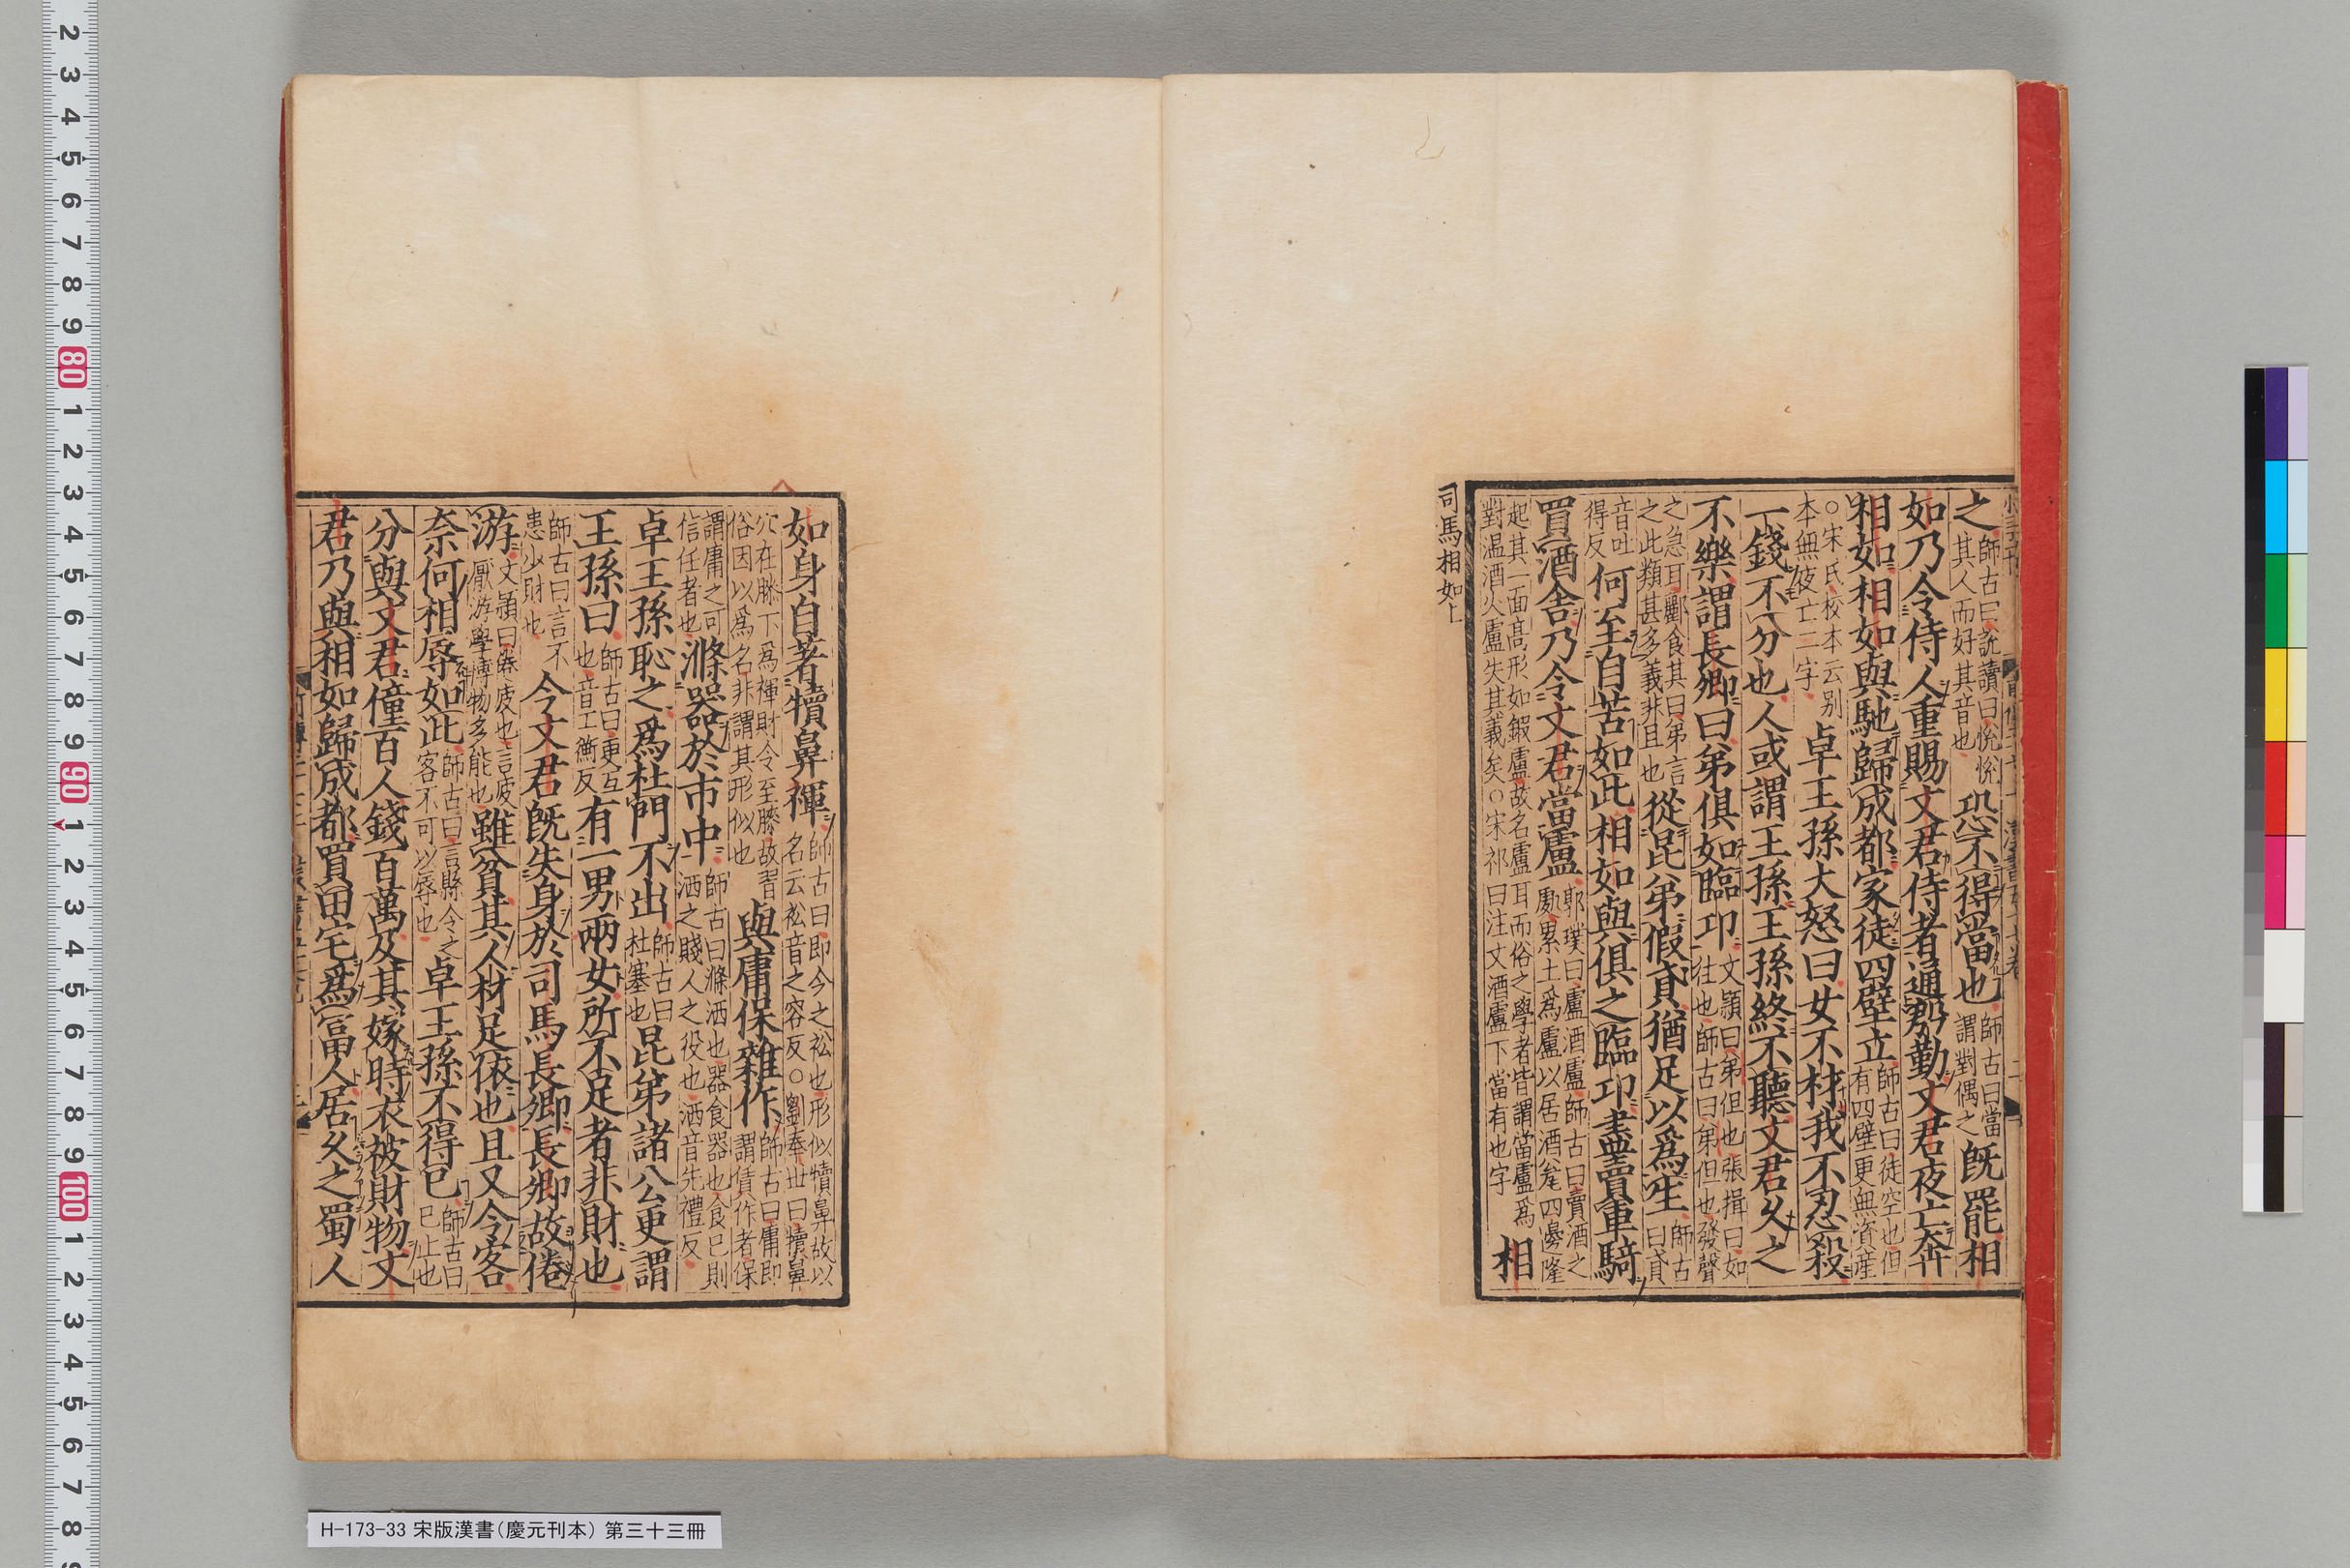 之師古曰說讀曰悅悅其人而好其音也恐不得當也師古曰當謂對偶之旣罷相
如乃令侍人重賜文君侍者通殷勤文君夜亡奔
相如相如與馳歸成都家徒四壁立師古曰徒空也但有四壁更無資産
○宋氏校本云别本無夜亡二字卓王孫大怒曰女不材我不忍殺
一錢不分也人或謂王孫王孫終不聽文君久之
不樂謂長卿曰弟俱如臨卭文穎曰弟但也張揖曰如往也師古曰弟但也發聲
之急耳酈食其曰弟言之此類甚多義非且也從昆弟假貣猶足以爲生師古曰貣
音吐得反何至自苦如此相如與俱之臨卭盡賣車騎
買酒舍乃令文君當盧郭璞曰盧酒盧師古曰賣酒之處累土爲盧以居酒瓮四邊隆
起其一面髙形如鍜盧故名盧耳而俗之學者皆謂當盧爲對温酒火盧失其義矣○宋祁曰注文酒盧下當有也字相
司馬相如上
如身自著犢鼻褌師古曰即今之衳也形似犢鼻故以名云衳音之容反○劉奉世曰犢鼻
穴在膝下爲褌財令至膝故習俗因以爲名非謂其形似也與庸保雜作師古曰庸即謂賃作者保
謂庸之可信任者也滌器於市中師古曰滌洒也器食器也食已則洒之賤人之役也洒音先禮反
卓王孫恥之爲杜門不出師古曰杜塞也昆弟諸公更謂
王孫曰師古曰更互也音工衡反有一男兩女所不足者非財也
師古曰言不患少財也今文君旣失身於司馬長卿長卿故倦
游文穎曰倦疲也言疲厭游學博物多能也雖貧其人材足依也且又令客
奈何相辱如此師古曰言縣令之客不可以辱也卓王孫不得已師古曰已止也
分與文君僮百人錢百萬及其嫁時衣被財物文
君乃與相如歸成都買田宅爲富人居久之蜀人
H-173-33 宋版漢書（慶元刊本） 第三十三冊